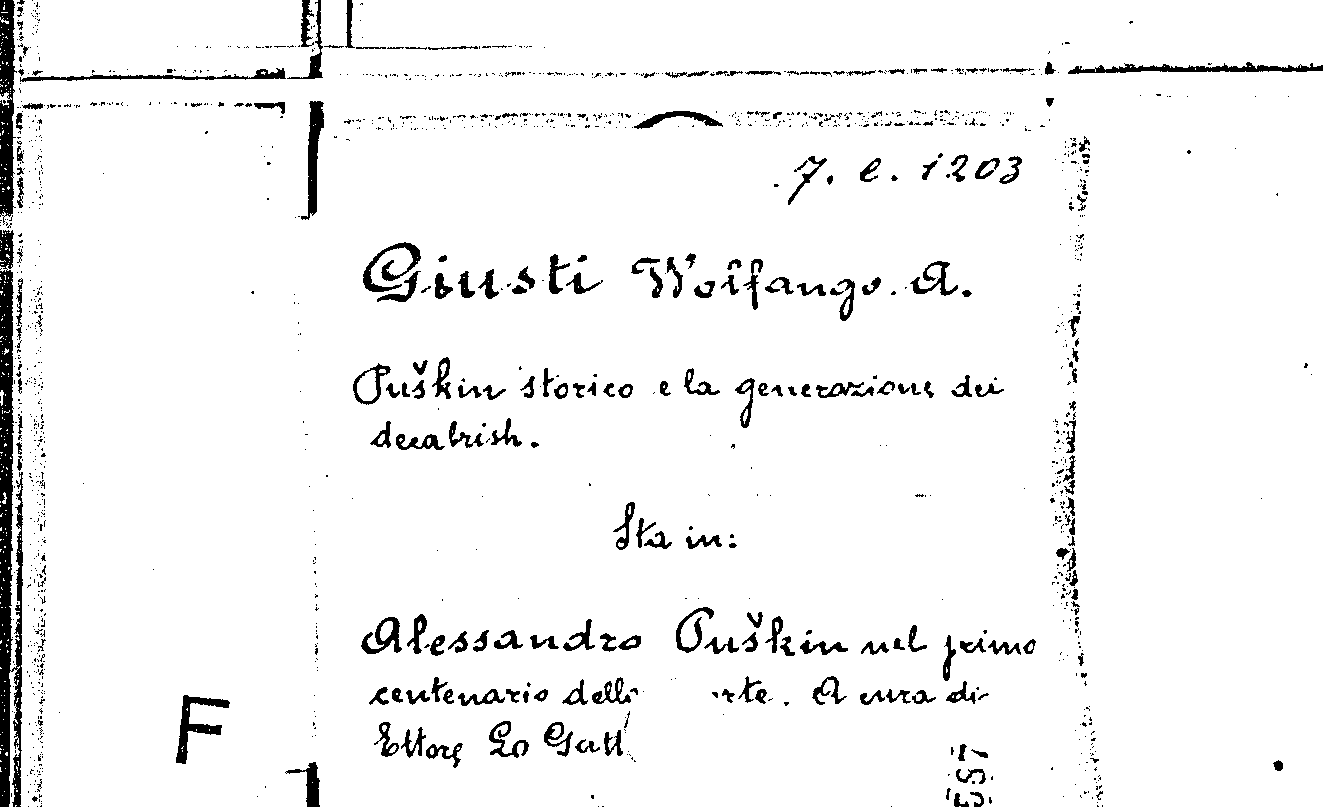 7. e. 1203
Giusti Wolfango. A.
Puškin storico e la generazione dei
decabristi.
Sta in:
Alessandro Puškin nel primo
centenario della rte. A cura di
Ettore Lo Gatt
F